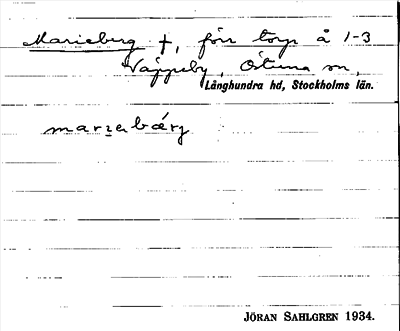 Marieberg †, förr torp å 1-3
Väppeby, Östuna sn,
Långhundra hd, Stockholms län.
marɪ̱abǽrj
JÖRAN SAHLGREN 1934.